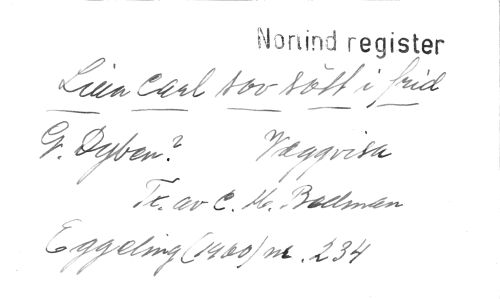 Norlind register
Liten Carl sov sött i frid
G. Dyben? Vaggvisa
Tr. av C. M. Bellman
Eggeling (1900) nr. 234